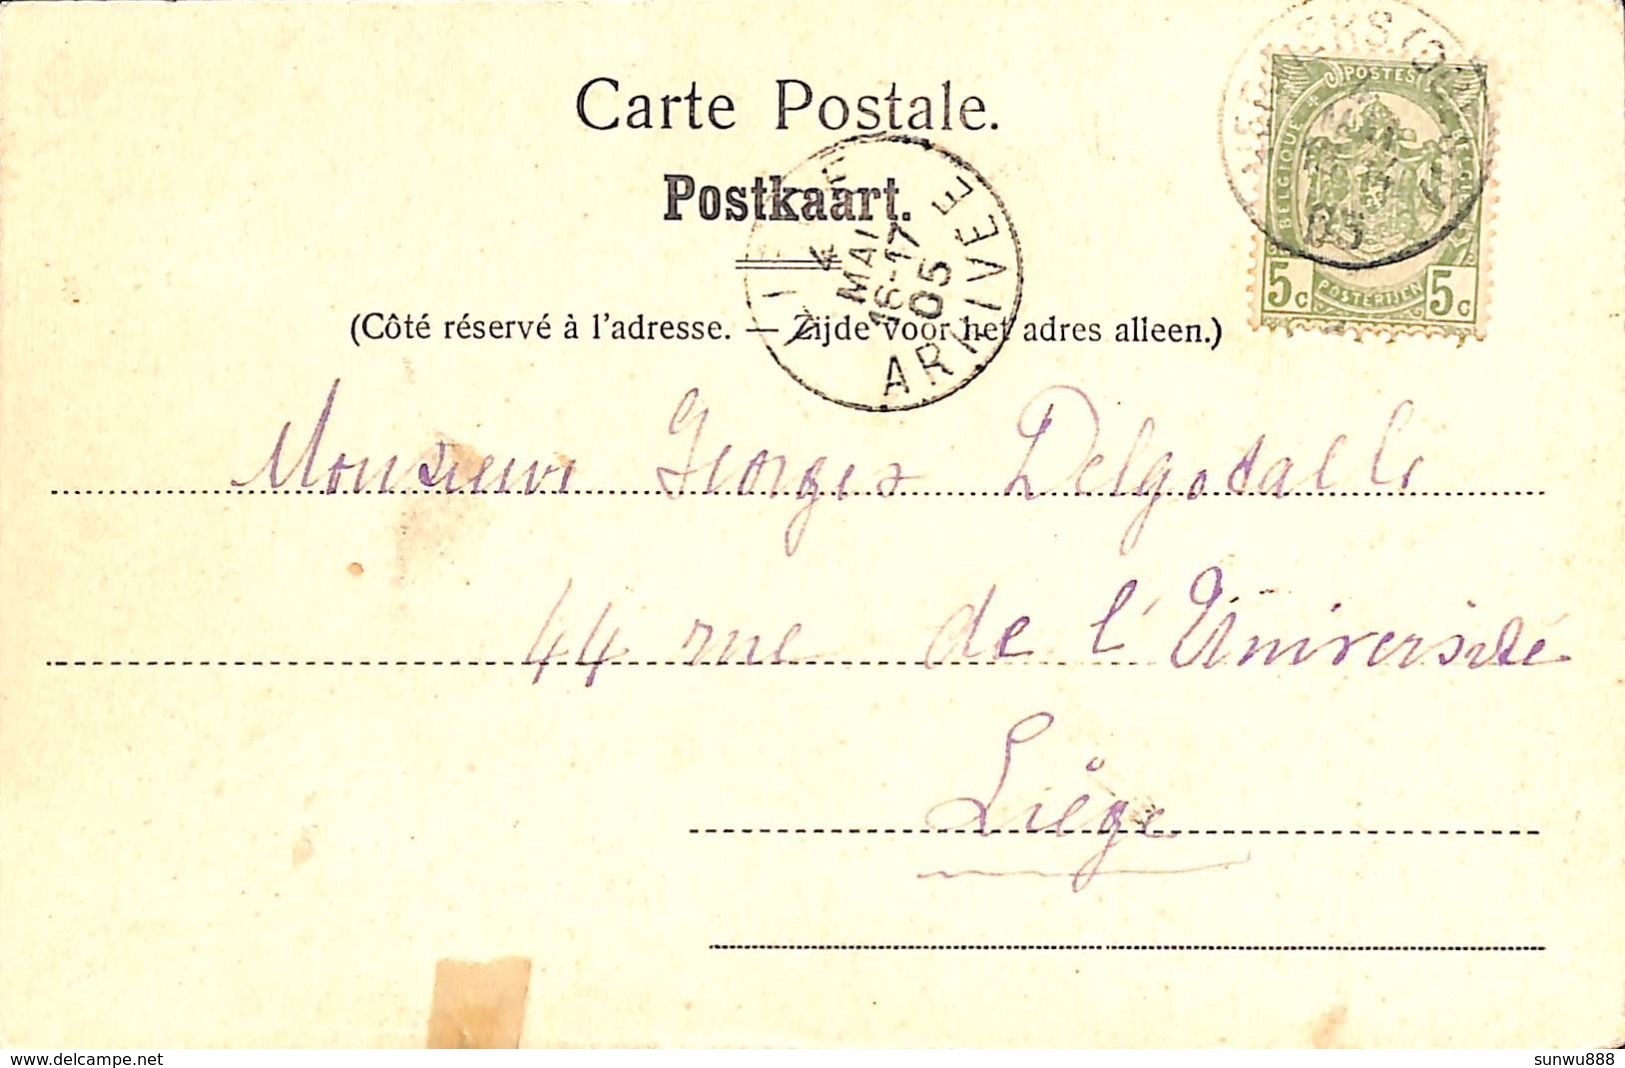 Carte Postale.
Postkaart.
(Côté réservé à l'adresse. — Zijde voor het adres alleen.)
4
MAI
16-17
05
ARRIVÉE
POSTES
BELGIQUE
BELGIE
5c POSTERIJEN 5c
05
Monsieur Georges Delgodalle
44 rue de l'Université
Liège
delcampe.net
sunwu888